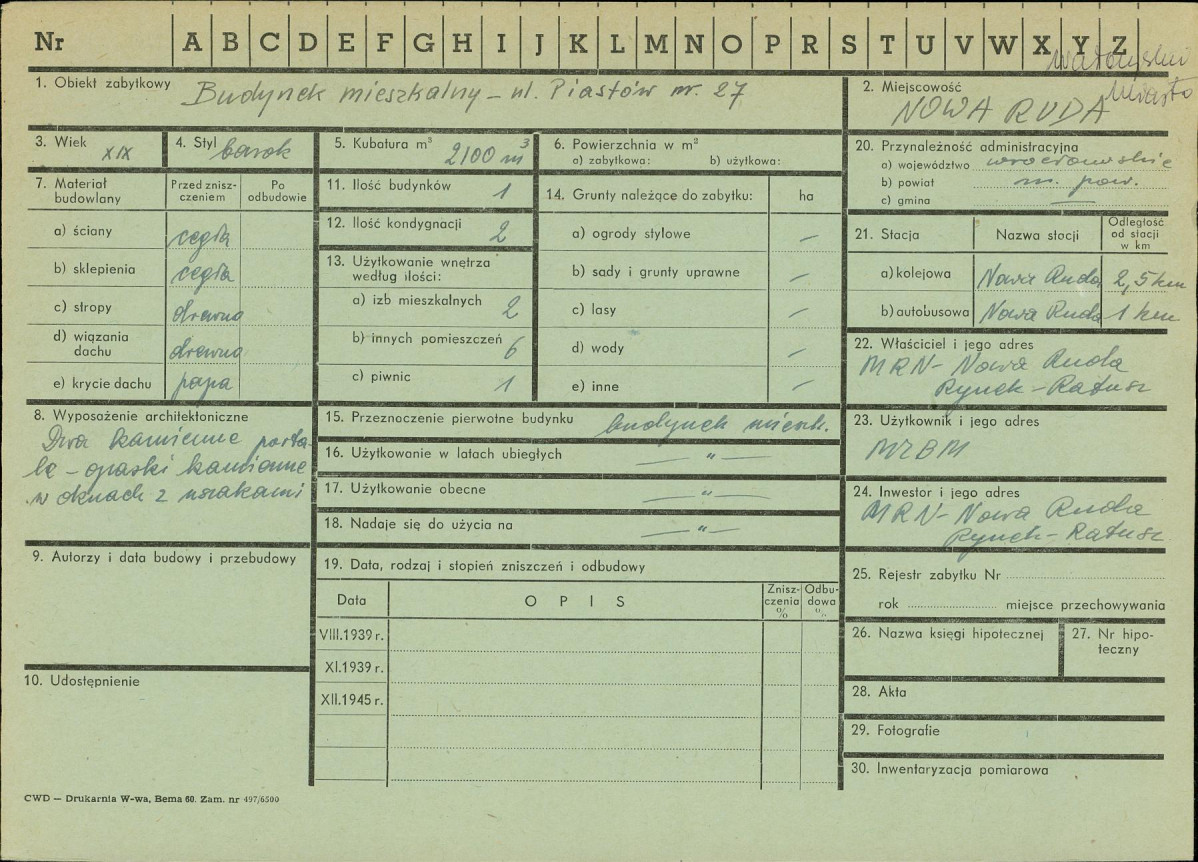 Nr A B C D E F G H I J K L M N O P R S T U V W X Y Z
1. Obiekt zabytkowy Budynek mieszkalny – ul. Piastów nr. 27
2. Miejscowość
NOWA RUDA Miasto
3. Wiek XIX
4. Styl barok
5. Kubatura m³ 2100 m³
6. Powierzchnia w m²
a) zabytkowa: b) użytkowa:
7. Materiał budowlany
Przed znisz-
czeniem
Po
odbudowie
a) ściany cegła
b) sklepienia cegła
c) stropy drewno
d) wiązania
dachu drewno
e) krycie dachu papa
8. Wyposażenie architektoniczne
Dwa kamienne porta-
le – opaski kamienne
w oknach z uszakami
9. Autorzy i data budowy i przebudowy
10. Udostępnienie
11. Ilość budynków 1
12. Ilość kondygnacji 2
13. Użytkowanie wnętrza
według ilości:
a) izb mieszkalnych 2
b) innych pomieszczeń 6
c) piwnic 1
14. Grunty należące do zabytku: ha
a) ogrody stylowe –
b) sady i grunty uprawne –
c) lasy –
d) wody –
e) inne –
15. Przeznaczenie pierwotne budynku budynek mieszk.
16. Użytkowanie w latach ubiegłych — " —
17. Użytkowanie obecne — " —
18. Nadaje się do użycia na — " —
19. Data, rodzaj i stopień zniszczeń i odbudowy
Data OPIS
Znisz-
czenia
%
Odbu-
dowa
%
VIII.1939 r.
XI.1939 r.
XII.1945 r.
20. Przynależność administracyjna
a) województwo wrocławskie
b) powiat m. pow.
c) gmina —
21. Stacja Nazwa stacji
Odległość
od stacji
w km
a) kolejowa Nowa Ruda 2,5 km
b) autobusowa Nowa Ruda 1 km
22. Właściciel i jego adres
MRN – Nowa Ruda
Rynek – Ratusz
23. Użytkownik i jego adres
MZBM
24. Inwestor i jego adres
MRN – Nowa Ruda
Rynek – Ratusz
25. Rejestr zabytku Nr
rok miejsce przechowywania
26. Nazwa księgi hipotecznej
27. Nr hipo-
teczny
28. Akta
29. Fotografie
30. Inwentaryzacja pomiarowa
CWD – Drukarnia W-wa, Bema 60. Zam. nr 497/6500